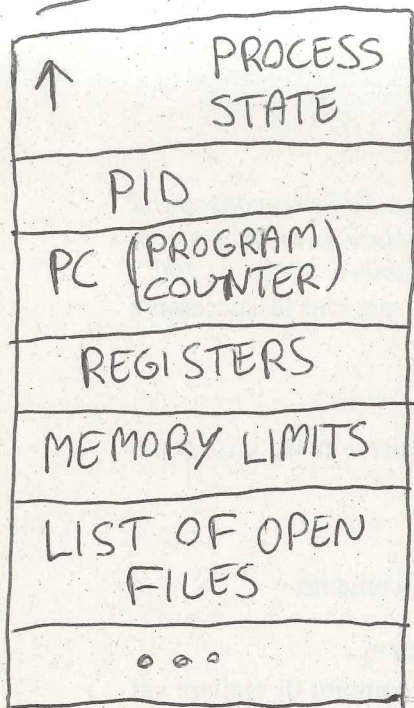 ↑ PROCESS
STATE
PID
PC (PROGRAM
COUNTER)
REGISTERS
MEMORY LIMITS
LIST OF OPEN
FILES
...